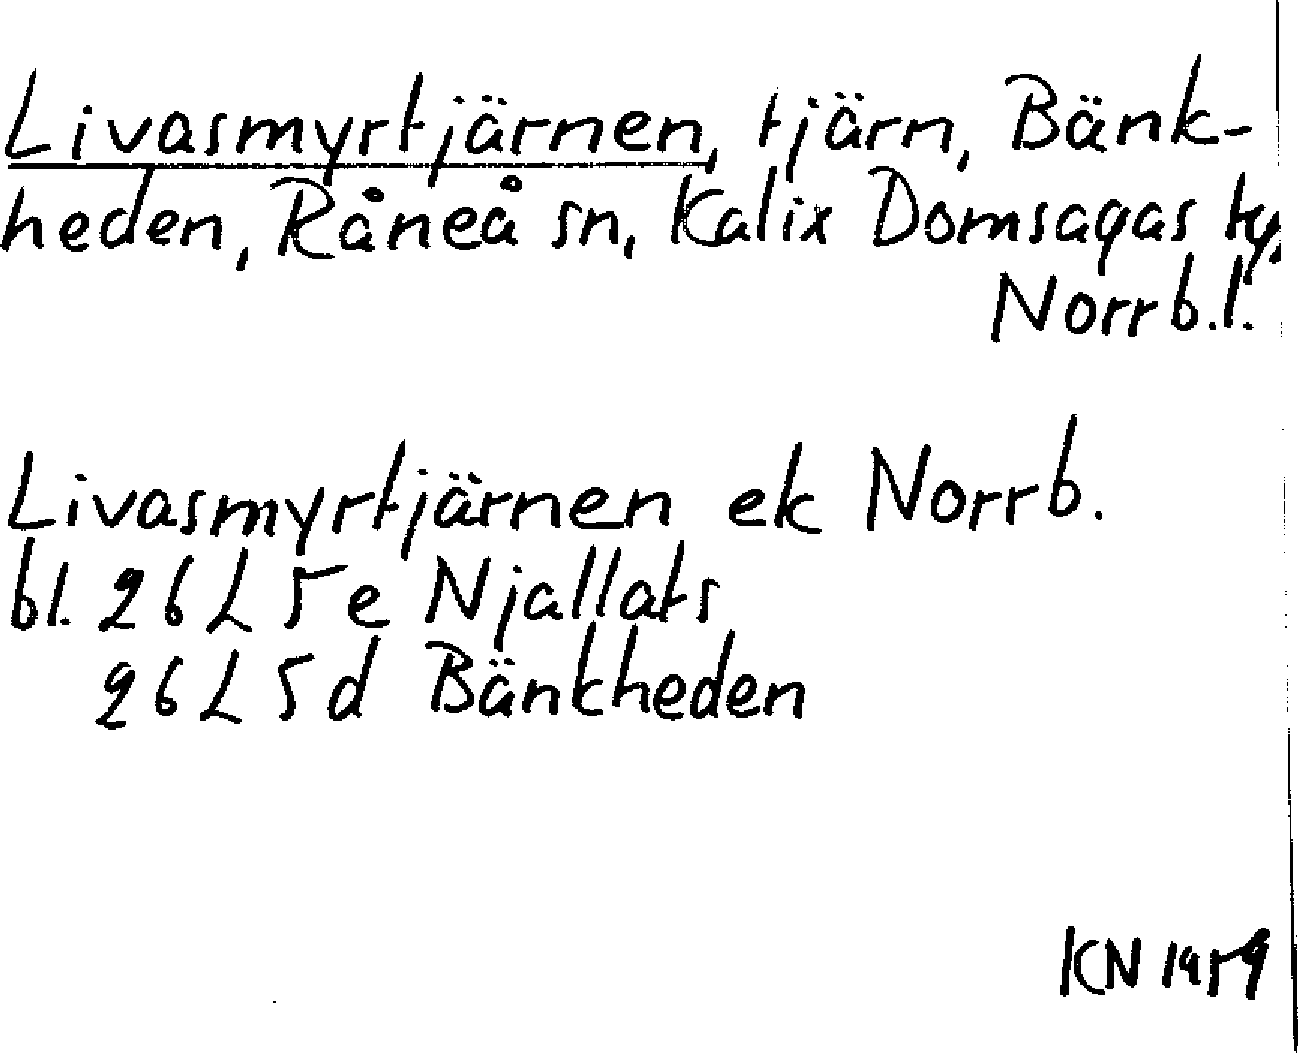 Livasmyrtjärnen, tjärn, Bänk-
heden, Råneå sn, Kalix Domsagas tg,
Norrb.l.
Livasmyrtjärnen ek Norrb.
bl. 26 L 5e Njallats
26 L 5d Bänkheden
KN 1959